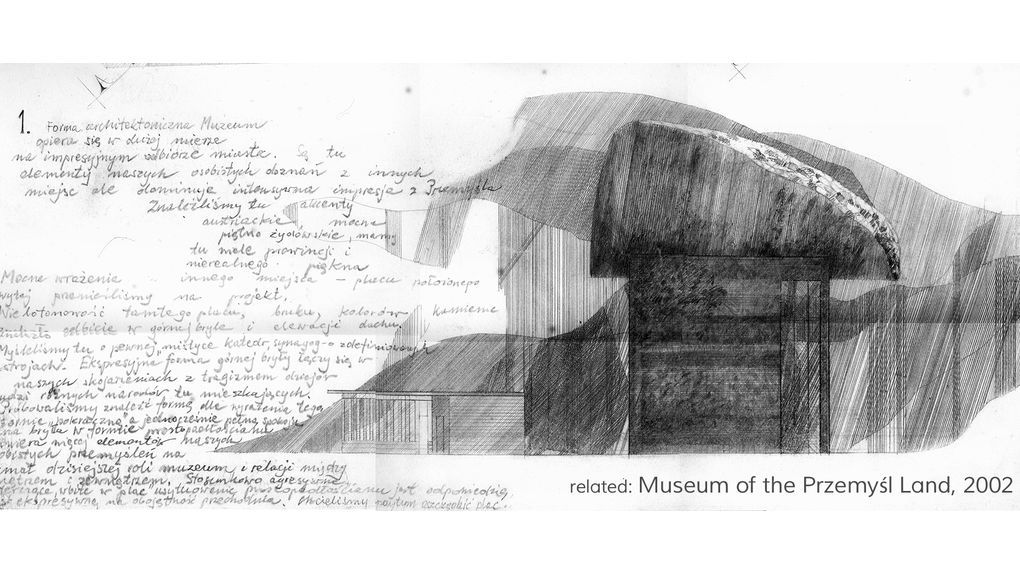 1. Forma architektoniczna Muzeum
opiera się w dużej mierze
na impresyjnym odbiorze miasta. Są tu
elementy naszych osobistych doznań z innych
miejsc ale dominuje intensywna impresja z Przemyśla
Znaleźliśmy tu akcenty
austriackie mocne
piętno żydowskie, mamy
tu małe prowincji i
nierealnego piękna
Mocne wrażenia innego miejsca – placu położonego
wyżej przenieśliśmy na projekt.
Nielotoność tamtego placu, bruku, kolorów kamienic
znalazło odbicie w górnej bryle i elewacji dachu.
Myśleliśmy tu o pewnej mistyce katedr, synagog - o
strojach. Ekspresyjna forma górnej bryły łączy się w
naszych skojarzeniach z tragizmem dziejów
ludzi różnych narodów tu mieszkających.
Próbowaliśmy znaleźć formę dla wyrażenia tego
formie "pokraczną" a jednocześnie pełną spokoju
na bryła w formie prostopadłościanu
zawiera więcej elementów naszych
osobistych przemyśleń na
temat dzisiejszej roli muzeum i relacji między
wnętrzem i zewnętrzem. Stosunkowo agresywne
wbite w plac usytuowanie prostopadłościanu jest odpowiedzią
ekspresywną na obojętność przechodnia. Chcieliśmy
related: Museum of the Przemyśl Land, 2002